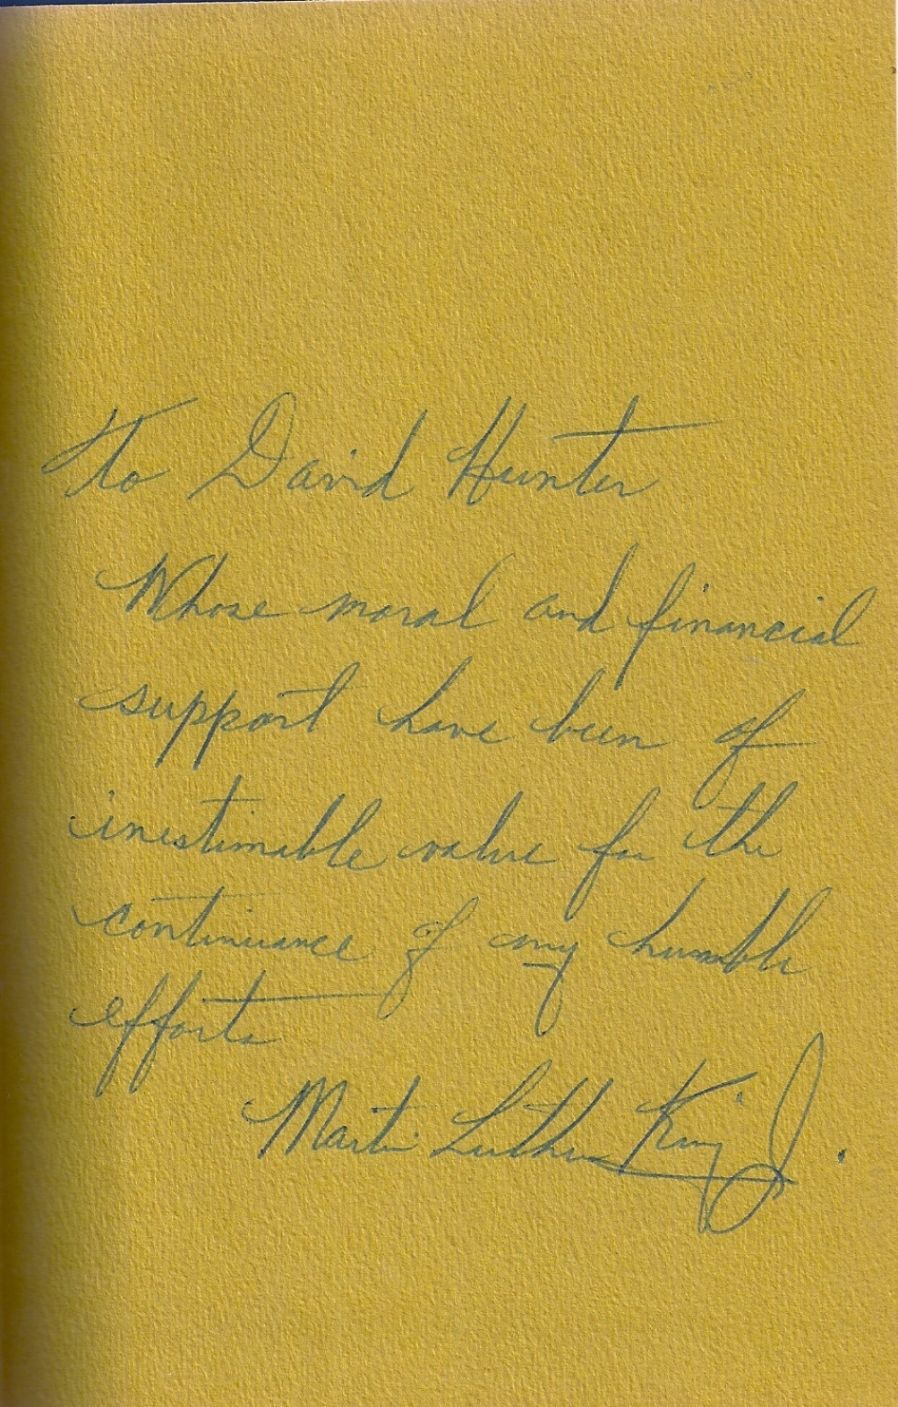 To David Hunter
Whose moral and financial
support have been of
inestimable value for the
continuance of my humble
efforts
Martin Luther King Jr.